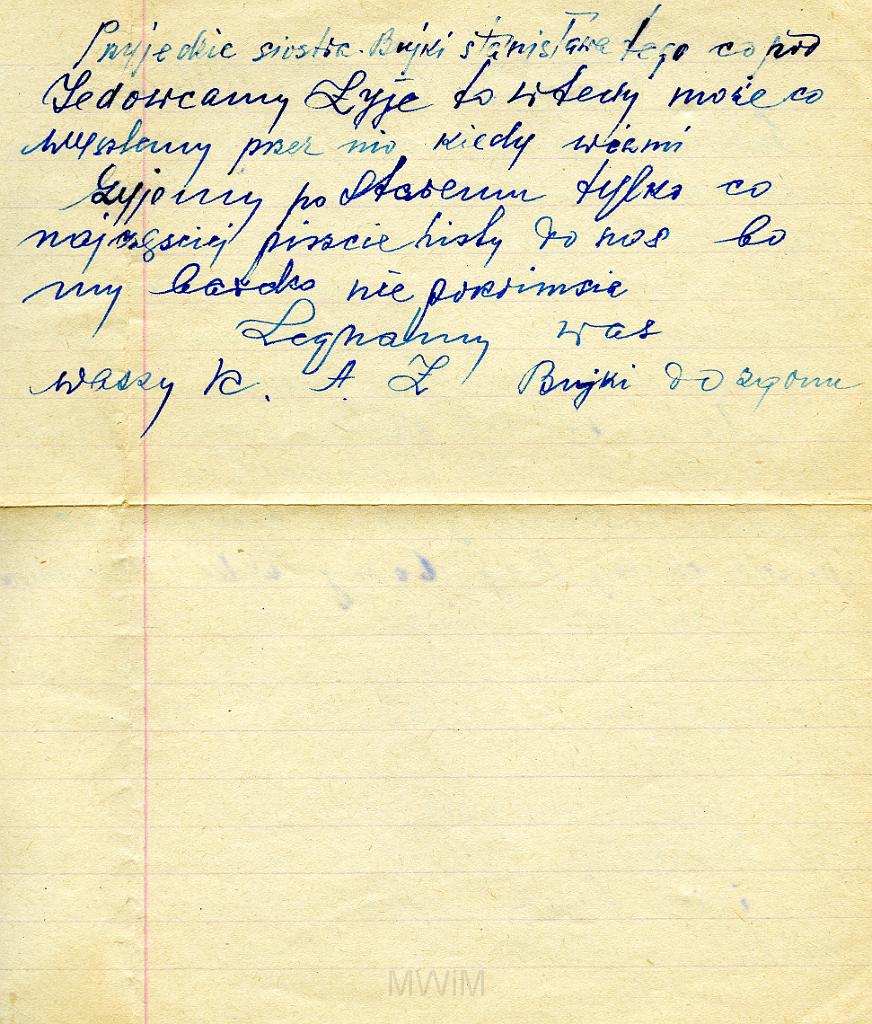 Pnyjedzie siostra Bujki stanisława tego co pod
Zedowcamy Żyje to wtedy może co
wyszlemy przez nio kiedy wiezmi
Żyjemy po staremu tylko co
najczęsciej piszcie listy do nas bo
my bardzo nie
Żegnamy was
waszy K. A. Z Bujki do zgonu
MWiM